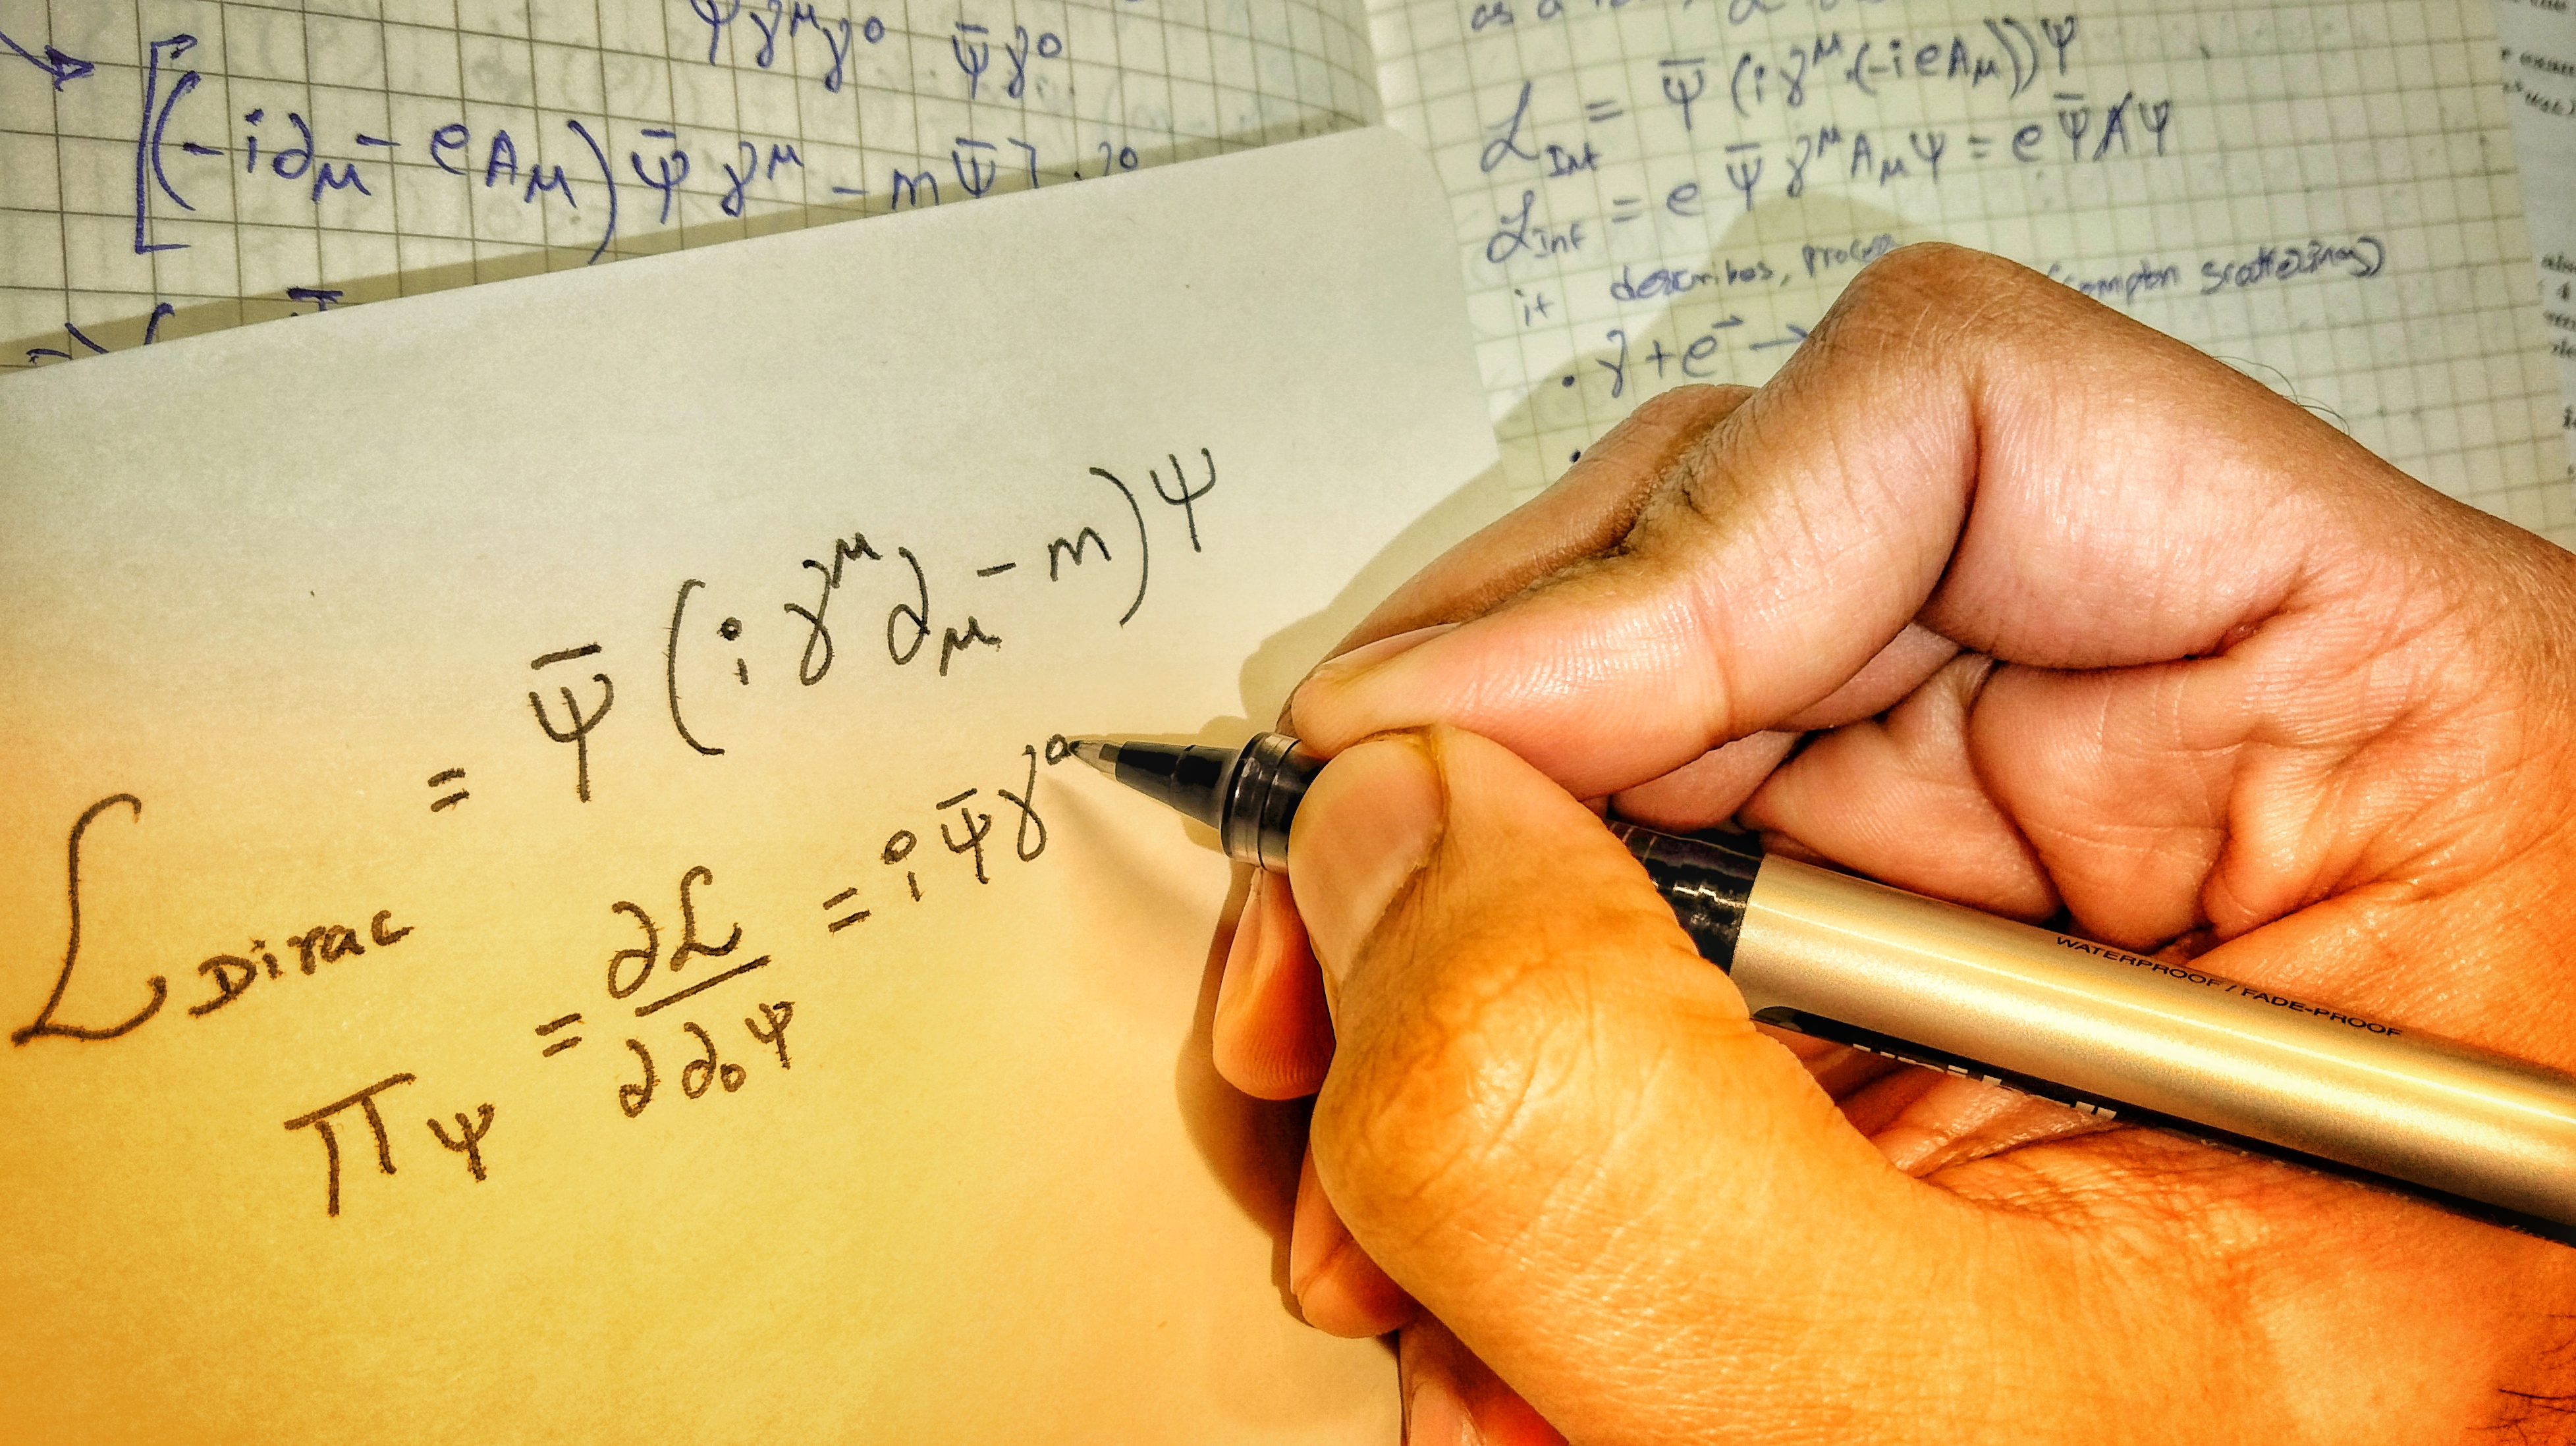 Ψγ^μγ^0 Ψ̄γ^0
[(-i∂_μ - eA_μ)Ψ̄γ^μ - mΨ̄]
as a
ℒ_Int = Ψ̄(iγ^μ(-ieA_μ))Ψ
ℒ_Int = eΨ̄γ^μA_μΨ = eΨ̄A̸Ψ
it describes, (Compton scattering)
• γ + e⁻ →
ℒ_Dirac = Ψ̄(iγ^μ∂_μ - m)Ψ
Π_Ψ = ∂ℒ/∂∂_0Ψ = iΨ̄γ^0
WATERPROOF / FADE-PROOF